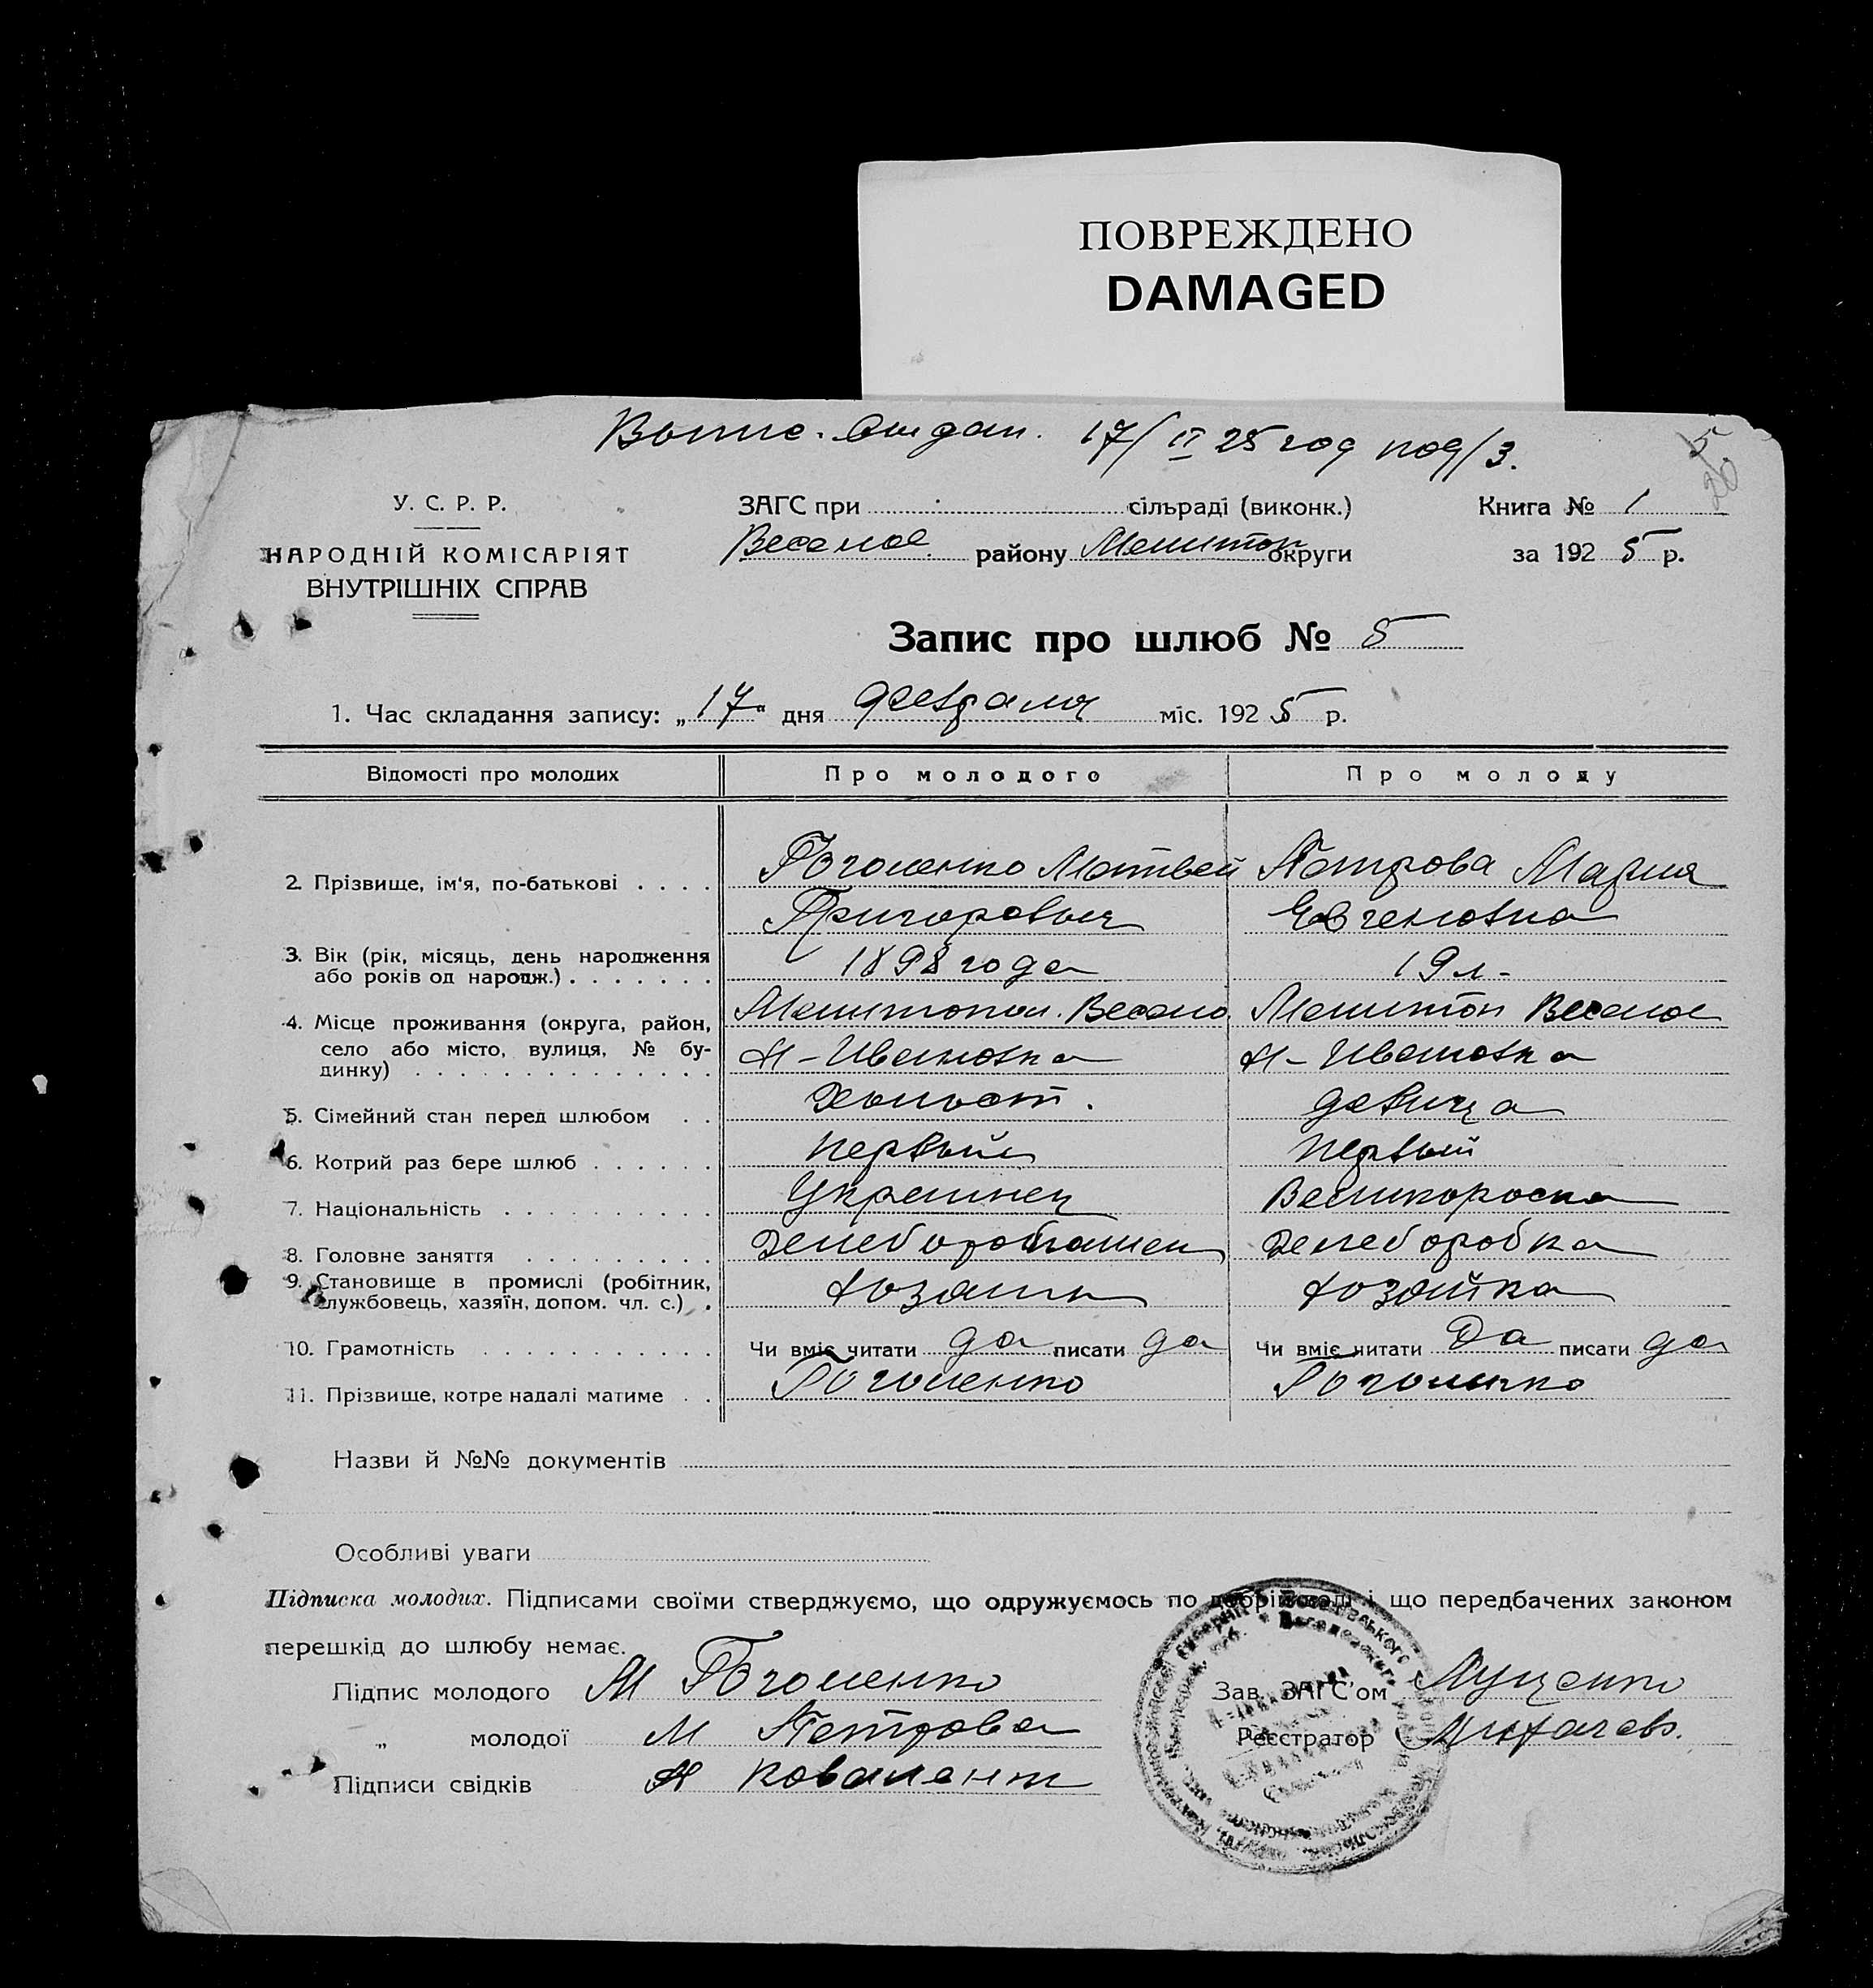 ПОВРЕЖДЕНО
DAMAGED
17/II 25 год под/3.
5
26
У. С. Р. Р.
ЗАГС при сільраді (виконк.)
Книга № 1
НАРОДНІЙ КОМІСАРІЯТ
Веселое району Мелитоп округи
за 1925 р.
ВНУТРІШНІХ СПРАВ
Запис про шлюб № 5
1. Час складання запису: „17“ дня февраля міс. 1925 р.
Відомості про молодих
Про молодого
Про молоду
2. Прізвище, ім'я, по-батькові
Гоголенко Матвей
Григоровыч
Петрова Мария
Евгеновна
3. Вік (рік, місяць, день народження
або років од народж.)
1898 года
19 л-
4. Місце проживання (округа, район,
село або місто, вулиця, № бу-
динку)
Мелитопол. Весело.
Н-Ивановка
Мелитоп Веселое
Н-Ивановка
5. Сімейний стан перед шлюбом
Холост.
девица
6. Котрий раз бере шлюб
первый
первый
7. Національність
Украинец
Великороска
8. Головне заняття
Хлеборобка
9. Становище в промислі (робітник,
службовець, хазяїн, допом. чл. с.)
хозяин
хозяйка
10. Грамотність
Чи вміє читати да писати да
Чи вміє читати Да писати да
11. Прізвище, котре надалі матиме
Гоголенко
Гоголенко
Назви й №№ документів
Особливі уваги
Підписка молодих. Підписами своїми стверджуємо, що одружуємось по добрій волі і що передбачених законом
перешкід до шлюбу немає.
Підпис молодого М Гоголенко
Зав. ЗАГС'ом Луценко
„ молодої М Петрова
Реєстратор
Підписи свідків Н Коваленко